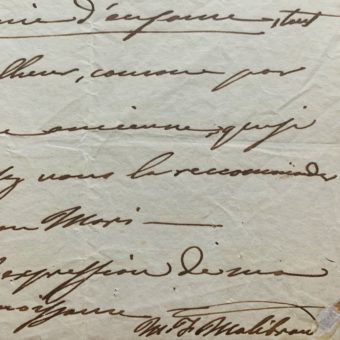 mie d'enfance, tout
lheur, comme par
ancienne, que je
vous la recommander
on Mari —
l'expression de ma
noissance
M F Malibran